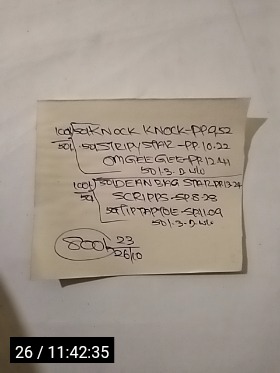 100/- 50/- KNOCK KNOCK-PP.9.52
50/- 50/- STRIPY STAR-PP.10.22
OMGEE GEE-PP.12.41
50/.3.D.W/C
100/- 50/- DEAN BAG STAR-PP.13-24
SCRIPPS-SP.8-28
TIPTAPTOE-SP.11.09
50/.3-D.W/C
800/-
23
26/10
26 / 11:42:35